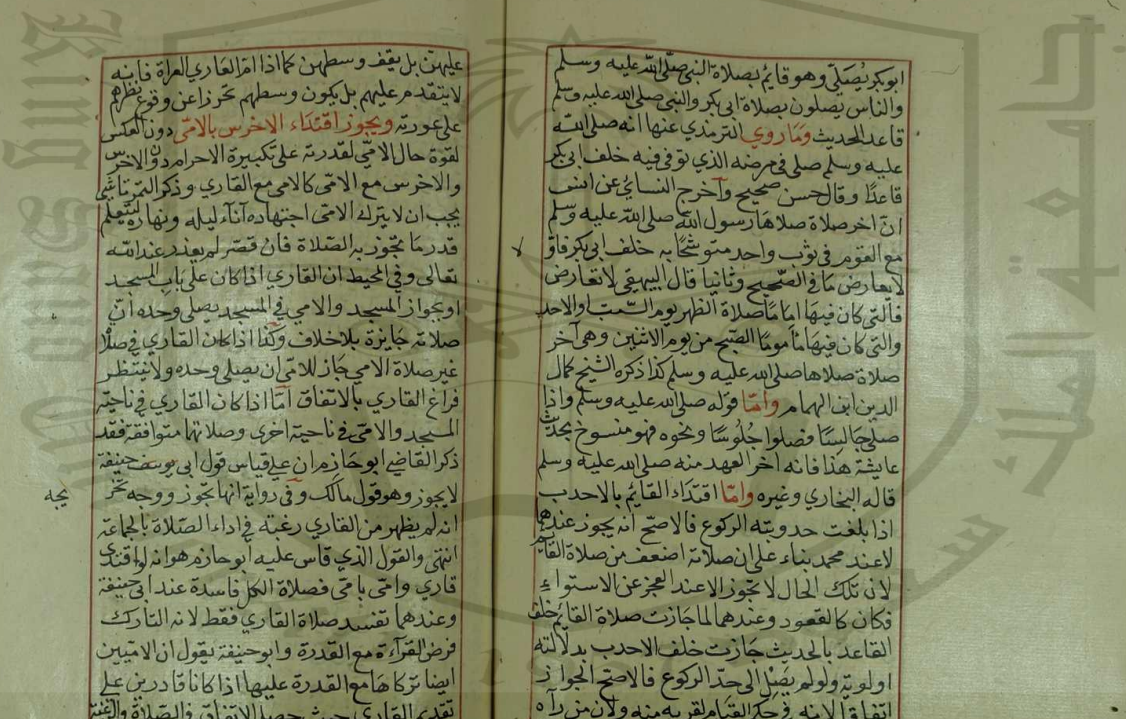 ابوبكر يُصَلِّي وهو قايم بصلاة النبي صلى الله عليه وسلم
والناس يصلون بصلاة ابى بكر والنبي صلى الله عليه وسلم
قاعد الحديث وما روي الترمذي عنها انه صلى الله
عليه وسلم صلى في مرضه الذي توفي فيه خلف ابى بكر
قاعدًا وقال حسن صحيح وأخرج النسائي عن انس
ان اخر صلاة صلاها رسول الله صلى الله عليه وسلم
مع القوم في ثوب واحد متوشحًا به خلف ابى بكر
لا يعارض ما في الصحيح وثانيا قال البيهقي لا تعارض
فالتي كان فيها امامًا صلاة الظهر يوم السبت او الاحد
والتى كان فيها مأمومًا الصبح من يوم الاثنين وهي آخر
صلاة صلاها صلى الله عليه وسلم كذا ذكره الشيخ كمال
الدين ابن الهمام وامّا قوله صلى الله عليه وسلم واذا
صلى جالسًا فصلوا جُلُوسًا ونحوه فهو منسوخ بحديث
عايشة هذا فانه اخر العهد منه صلى الله عليه وسلم
قاله البخاري وغيره وامّا اقتداء القايم بالاحدب
اذا بلغت حدوبته الركوع فالاصح انه يجوز عندهما
لا عند محمد بناء على ان صلاته اضعف من صلاة القايم
لان تلك الحال لا تجوز الا عند العجز عن الاستواء
فكان كالقعود وعندهما لما جازت صلاة القايم خلف
القاعد بالحديث جازت خلف الاحدب بدلالته
اولوية ولو لم يصل الى حدّ الركوع فالاصح الجواز
اتفاقا لانه في حكم القيام لقربه منه ولان من رآه
عليهن بل يقف وسطهن كما اذا ام القاري العراة فانه
لا يتقدم عليهم بل يكون وسطهم تحرزا عن وقوع نظرهم
على عورته ويجوز اقتداء الاخرس بالامّى دون العكس
لقوة حال الامّى لقدرته على تكبيرة الاحرام دون الاخرس
والاخرس مع الامّى كالامى مع القاري وذكر التمرتاشى
يجب ان لا يترك الامى اجتهاده آناء ليله ونهاره ليتعلم
قدر ما تجوز به الصلاة فان قصّر لم يعذر عند الله
تعالى وفي المحيط ان القاري اذا كان على باب المسجد
او بجوار المسجد والامي في المسجد يصلي وحده ان
صلاته جايزة بلا خلاف وكذا اذا كان القاري في صلاة
غير صلاة الامي جاز للامّي ان يصلي وحده ولا ينتظر
فراغ القاري بالاتفاق امّا اذا كان القاري في ناحية
المسجد والامّى في ناحية اخرى وصلاتهما متوافقة فقد
ذكر القاضي ابو حازم ان على قياس قول ابى حنيفة
لا يجوز وهو قول مالك وفي رواية انها تجوز ووجه
يجه
انه لم يظهر من القاري رغبة في اداء الصلاة بالجماعة
انتهى والقول الذي قاس عليه ابو حازم هو انه لو اقتدى
قاري وامّى بامّى فصلاة الكل فاسدة عند ابى حنيفة
وعندهما تفسد صلاة القاري فقط لانه التارك
فرض القرآءة مع القدرة وابو حنيفة يقول ان الاميين
ايضا تركاها مع القدرة عليها اذا كانا قادرين على
تقديم القاري حيث حصل الاتفاق في الصلاة والرغبة